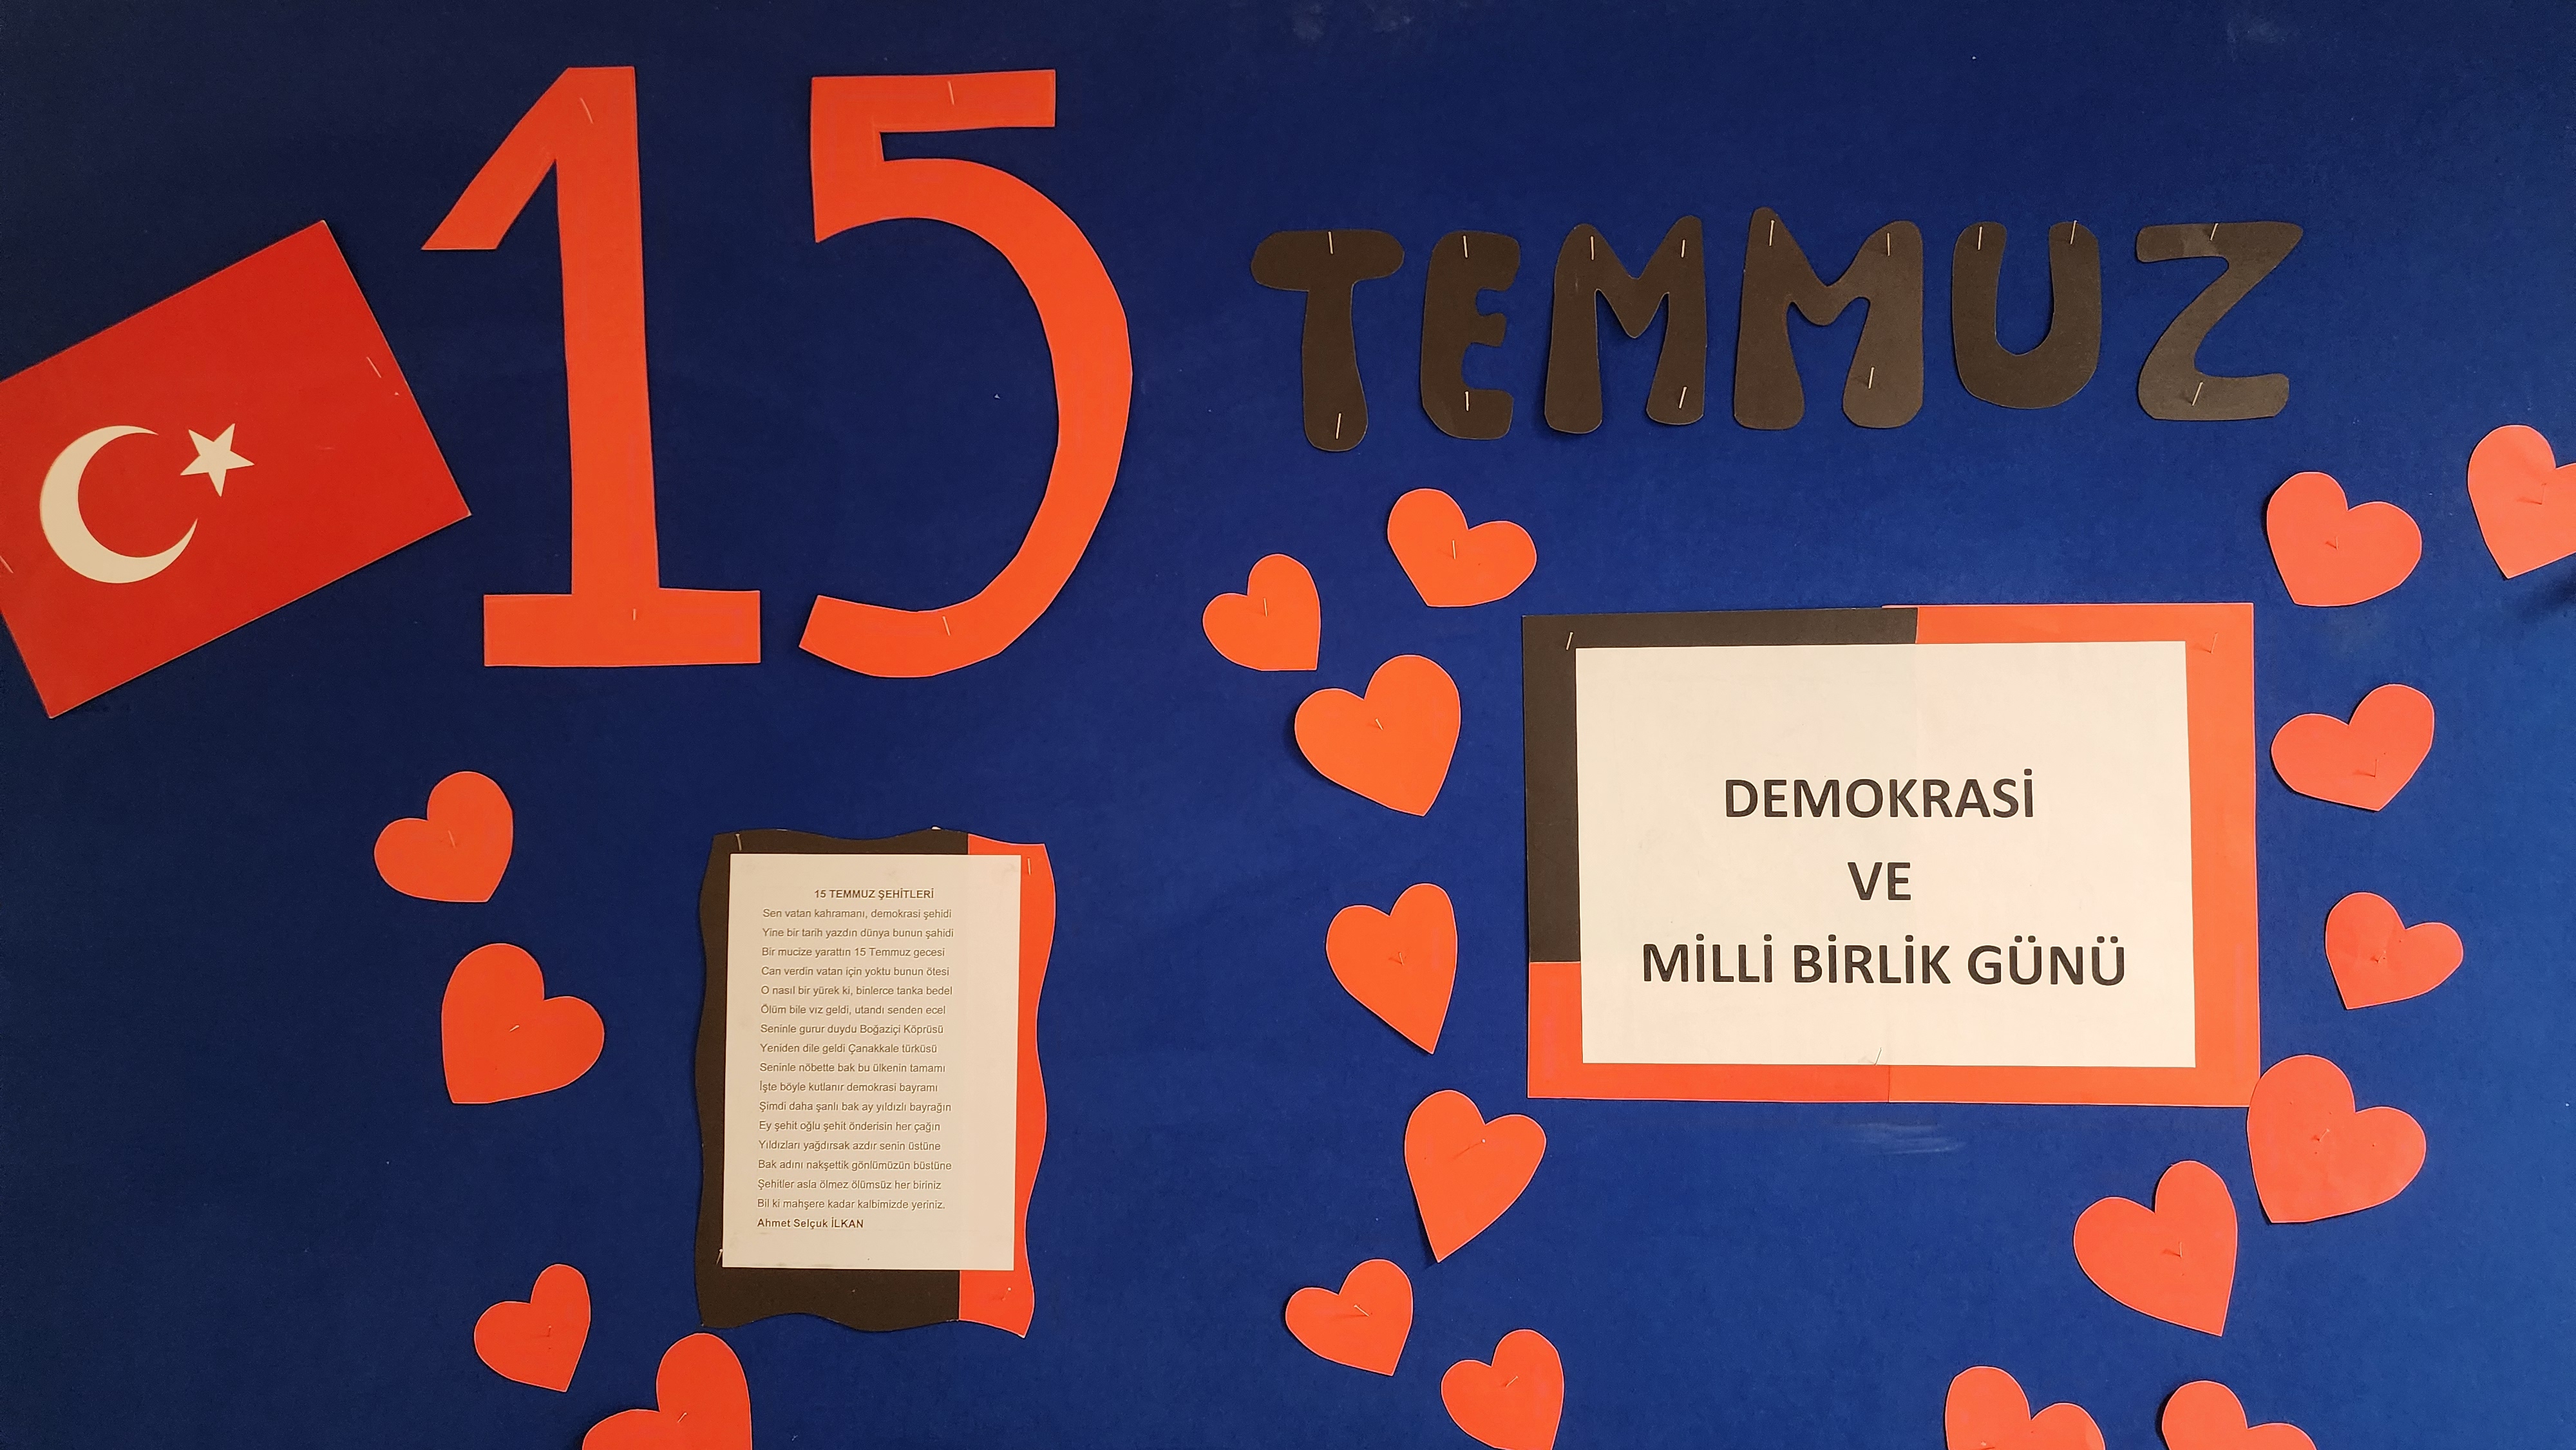 15 TEMMUZ
15 TEMMUZ ŞEHİTLERİ
Sen vatan kahramanı, demokrasi şehidi
Yine bir tarih yazdın dünya bunun şahidi
Bir mucize yarattın 15 Temmuz gecesi
Can verdin vatan için yoktu bunun ötesi
O nasıl bir yürek ki, binlerce tanka bedel
Ölüm bile vız geldi, utandı senden ecel
Seninle gurur duydu Boğaziçi Köprüsü
Yeniden dile geldi Çanakkale türküsü
Seninle nöbette bak bu ülkenin tamamı
İşte böyle kutlanır demokrasi bayramı
Şimdi daha şanlı bak ay yıldızlı bayrağın
Ey şehit oğlu şehit önderisin her çağın
Yıldızları yağdırsak azdır senin üstüne
Bak adını nakşettik gönlümüzün büstüne
Şehitler asla ölmez ölümsüz her biriniz
Bil ki mahşere kadar kalbimizde yeriniz.
Ahmet Selçuk İLKAN
DEMOKRASİ
VE
MİLLİ BİRLİK GÜNÜ